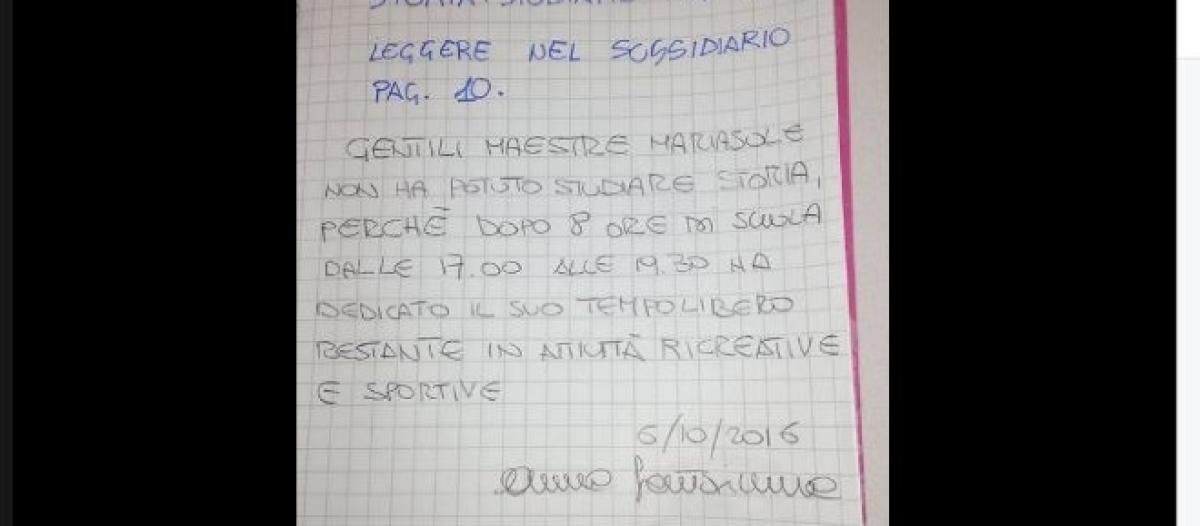 LEGGERE NEL SUSSIDIARIO
PAG. 10.
GENTILI MAESTRE MARIASOLE
NON HA POTUTO STUDIARE STORIA,
PERCHÈ DOPO 8 ORE DI SCUOLA
DALLE 17.00 ALLE 19.30 HA
DEDICATO IL SUO TEMPO LIBERO
RESTANTE IN ATTIVITÀ RICREATIVE
E SPORTIVE
6/10/2016